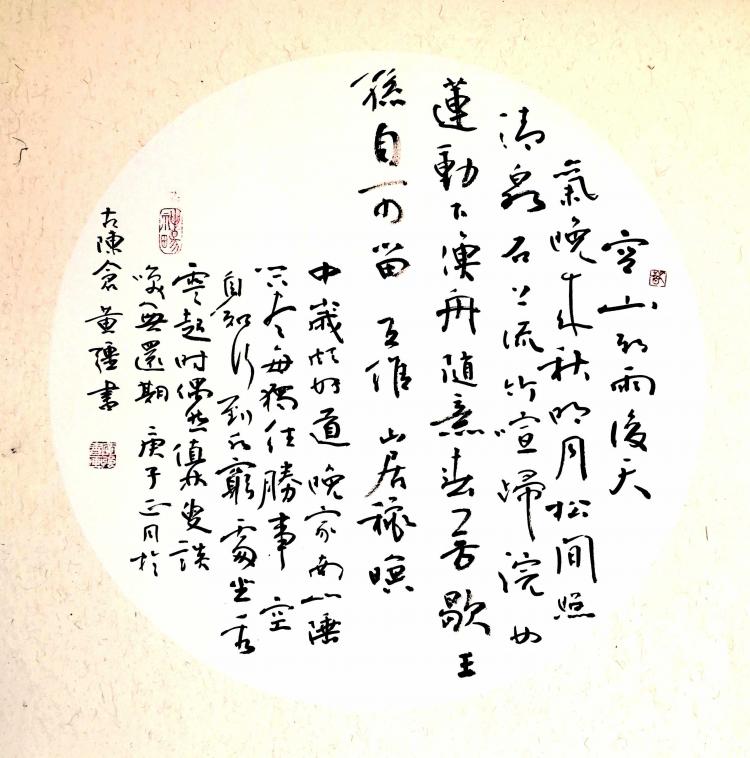 空山新雨後天
氣晚来秋明月松間照
清泉石上流竹喧歸浣女
蓮動下漁舟随意春芳歇王
孫自可留 王維 山居秋暝
中歲頗好道晚家南山陲
興来每獨往勝事空
自知行到水窮處坐看
雲起时偶然值林叟談
咲無還期 庚子正月於
古陳倉黄疆書